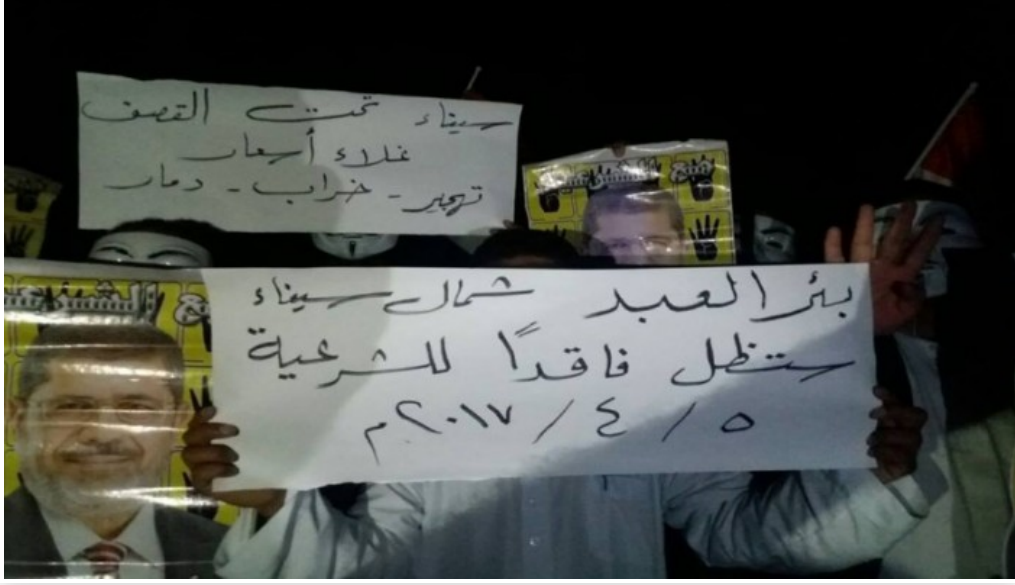 سيناء تحت القصف
غلاء أسعار
تهجير - خراب - دمار
بئر العبد شمال سيناء
ستظل فاقداً للشرعية
٥ / ٤ / ٢٠١٧م
مع